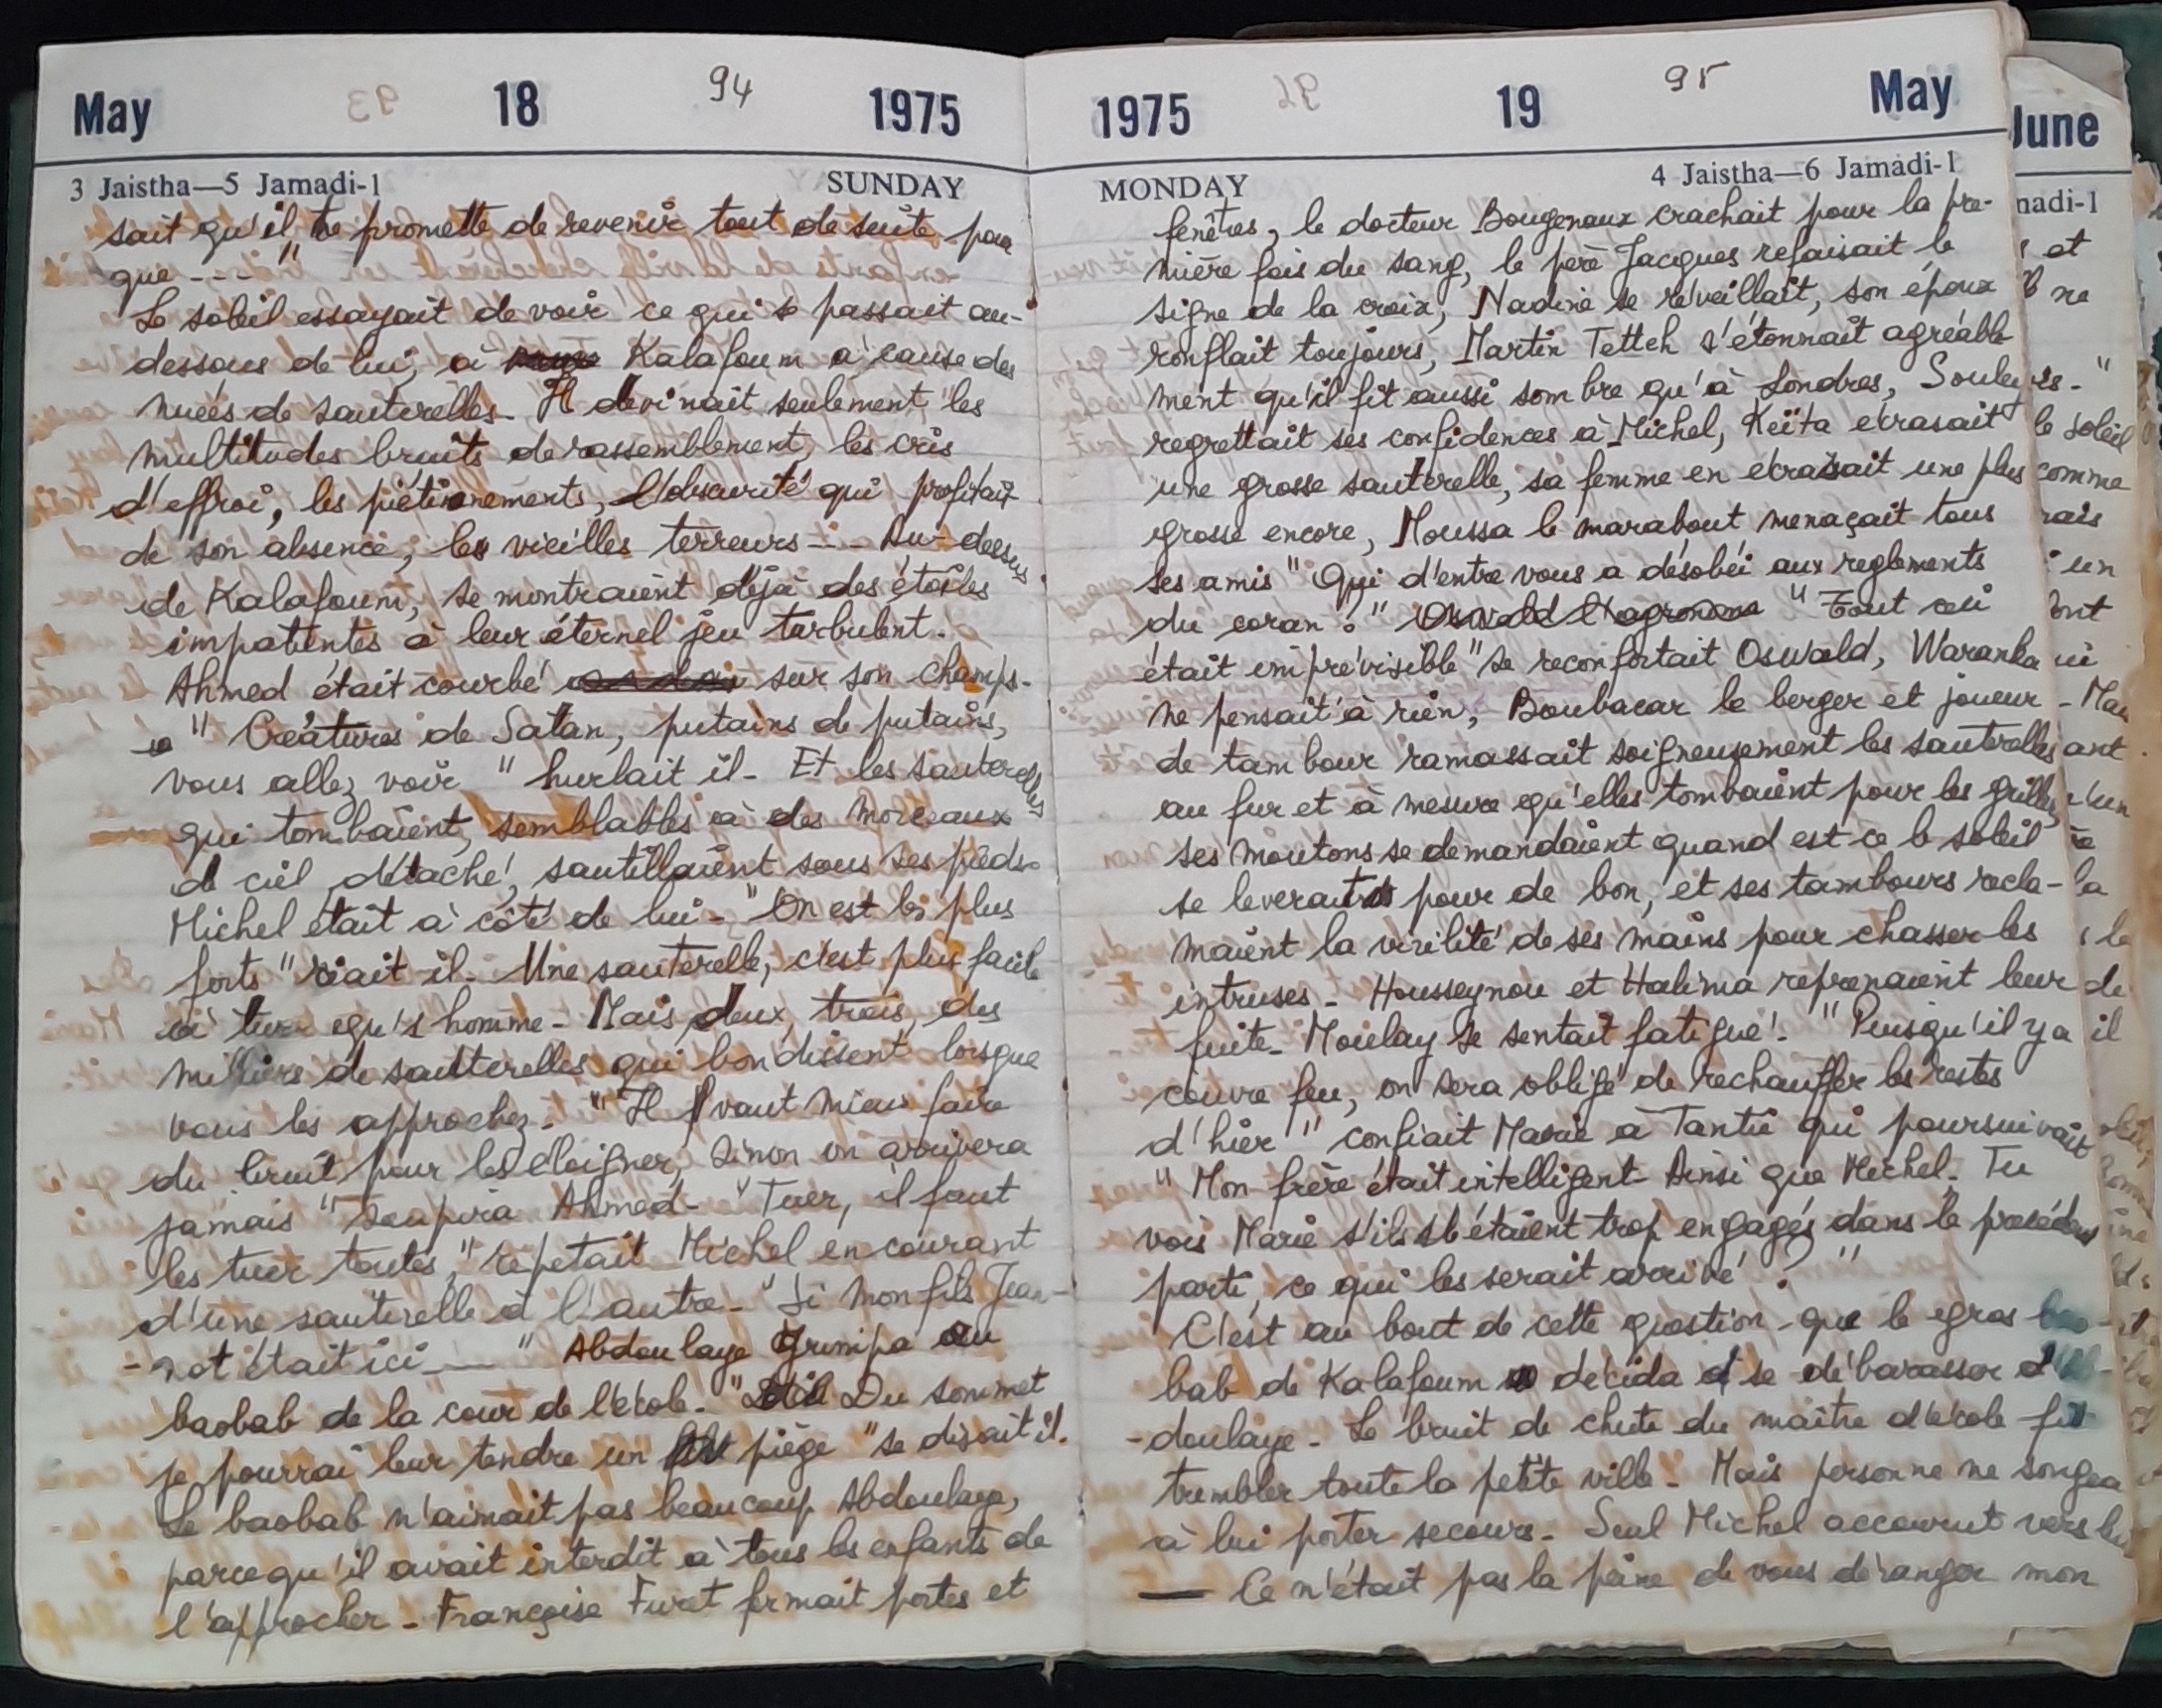 May 18 94 1975
3 Jaistha—5 Jamadi-1 SUNDAY
sait qu'il te promette de revenir tout de suite pour
que ---- "
Le soleil essayait de voir ce qui se passait au-
dessous de lui, à Kalafoum à cause des
nuées de sauterelles. Il devinait seulement les
multitudes bruits de rassemblement, les cris
d'effroi, les piétinements, l'obscurité qui profitait
de son absence, les vieilles terreurs --- Au-dessus
de Kalafoum, se montraient déjà des étoiles
impatientes à leur éternel jeu turbulent.
Ahmed était courbé sur son champs.
" Créatures de Satan, putains de putains,
vous allez voir " hurlait il. Et les sauterelles
qui tombaient, semblables à des morceaux
de ciel détaché, sautillaient sous ses pieds.
Michel était à côté de lui. "On est les plus
forts" criait il. Une sauterelle, c'est plus facile
à tuer qu'1 homme. Mais deux, trois, des
milliers de sauterelles qui bondissent lorsque
vous les approchez. " Il vaut mieux faire
du bruit pour les éloigner, sinon on arrivera
jamais " soupira Ahmed. "Tuer, il faut
les tuer toutes," répetait Michel en courant
d'une sauterelle à l'autre. "Si mon fils Jean-
-not était ici ---- " Abdoulaye grimpa au
baobab de la cour de l'école. " Du sommet
je pourrai leur tendre un piège "se disait il.
Le baobab n'aimait pas beaucoup Abdoulaye,
parcequ'il avait interdit à tous les enfants de
l'approcher. Françoise Furet fermait portes et
1975 19 95 May
MONDAY 4 Jaistha—6 Jamadi-1
fenêtres, le docteur Bougenaux crachait pour la pre-
mière fois du sang, le père Jacques refaisait le
signe de la croix, Nadine se réveillait, son époux
ronflait toujours, Martin Tetteh s'étonnait agréable
ment qu'il fit aussi sombre qu'à Londres, Souley
regrettait ses confidences à Michel, Keïta ecrasait
une grosse sauterelle, sa femme en écrasait une plus
grosse encore, Moussa le marabout menaçait tous
ses amis " Qui d'entre vous a désobéi aux reglements
du coran ? " Oswald l'agronome " Tout celi
était imprévisible" se reconfortait Oswald, Waranka
ne pensait à rien, Boubacar le berger et joueur
de tambour ramassait soigneusement les sauterelles
au fur et à mesure qu'elles tombaient pour les griller,
ses moutons se demandaient quand est ce le soleil
se leverait pour de bon, et ses tambours recla-
maient la virilité de ses mains pour chasser les
intruses. Housseynou et Halima reprenaient leur
fuite. Moulay se sentait fatigué. " Puisqu'il y a
couvre feu, on sera obligé de rechauffer les restes
d'hier " confiait Marie à Tantie qui poursuivait
" Mon frère était intelligent. Ainsi que Michel. Tu
vois Marie s'ils s'étaient trop engagés dans le précédent
parti, ce qui les serait arrivé ? "
C'est au bout de cette question que le gros bao-
bab de Kalafoum décida de se débarasser d'Ab-
-doulaye. Le bruit de chute du maitre d'école fit
trembler toute la petite ville. Mais personne ne songea
à lui porter secours. Seul Michel accourut vers lui
— Ce n'était pas la peine de vous déranger mon
June